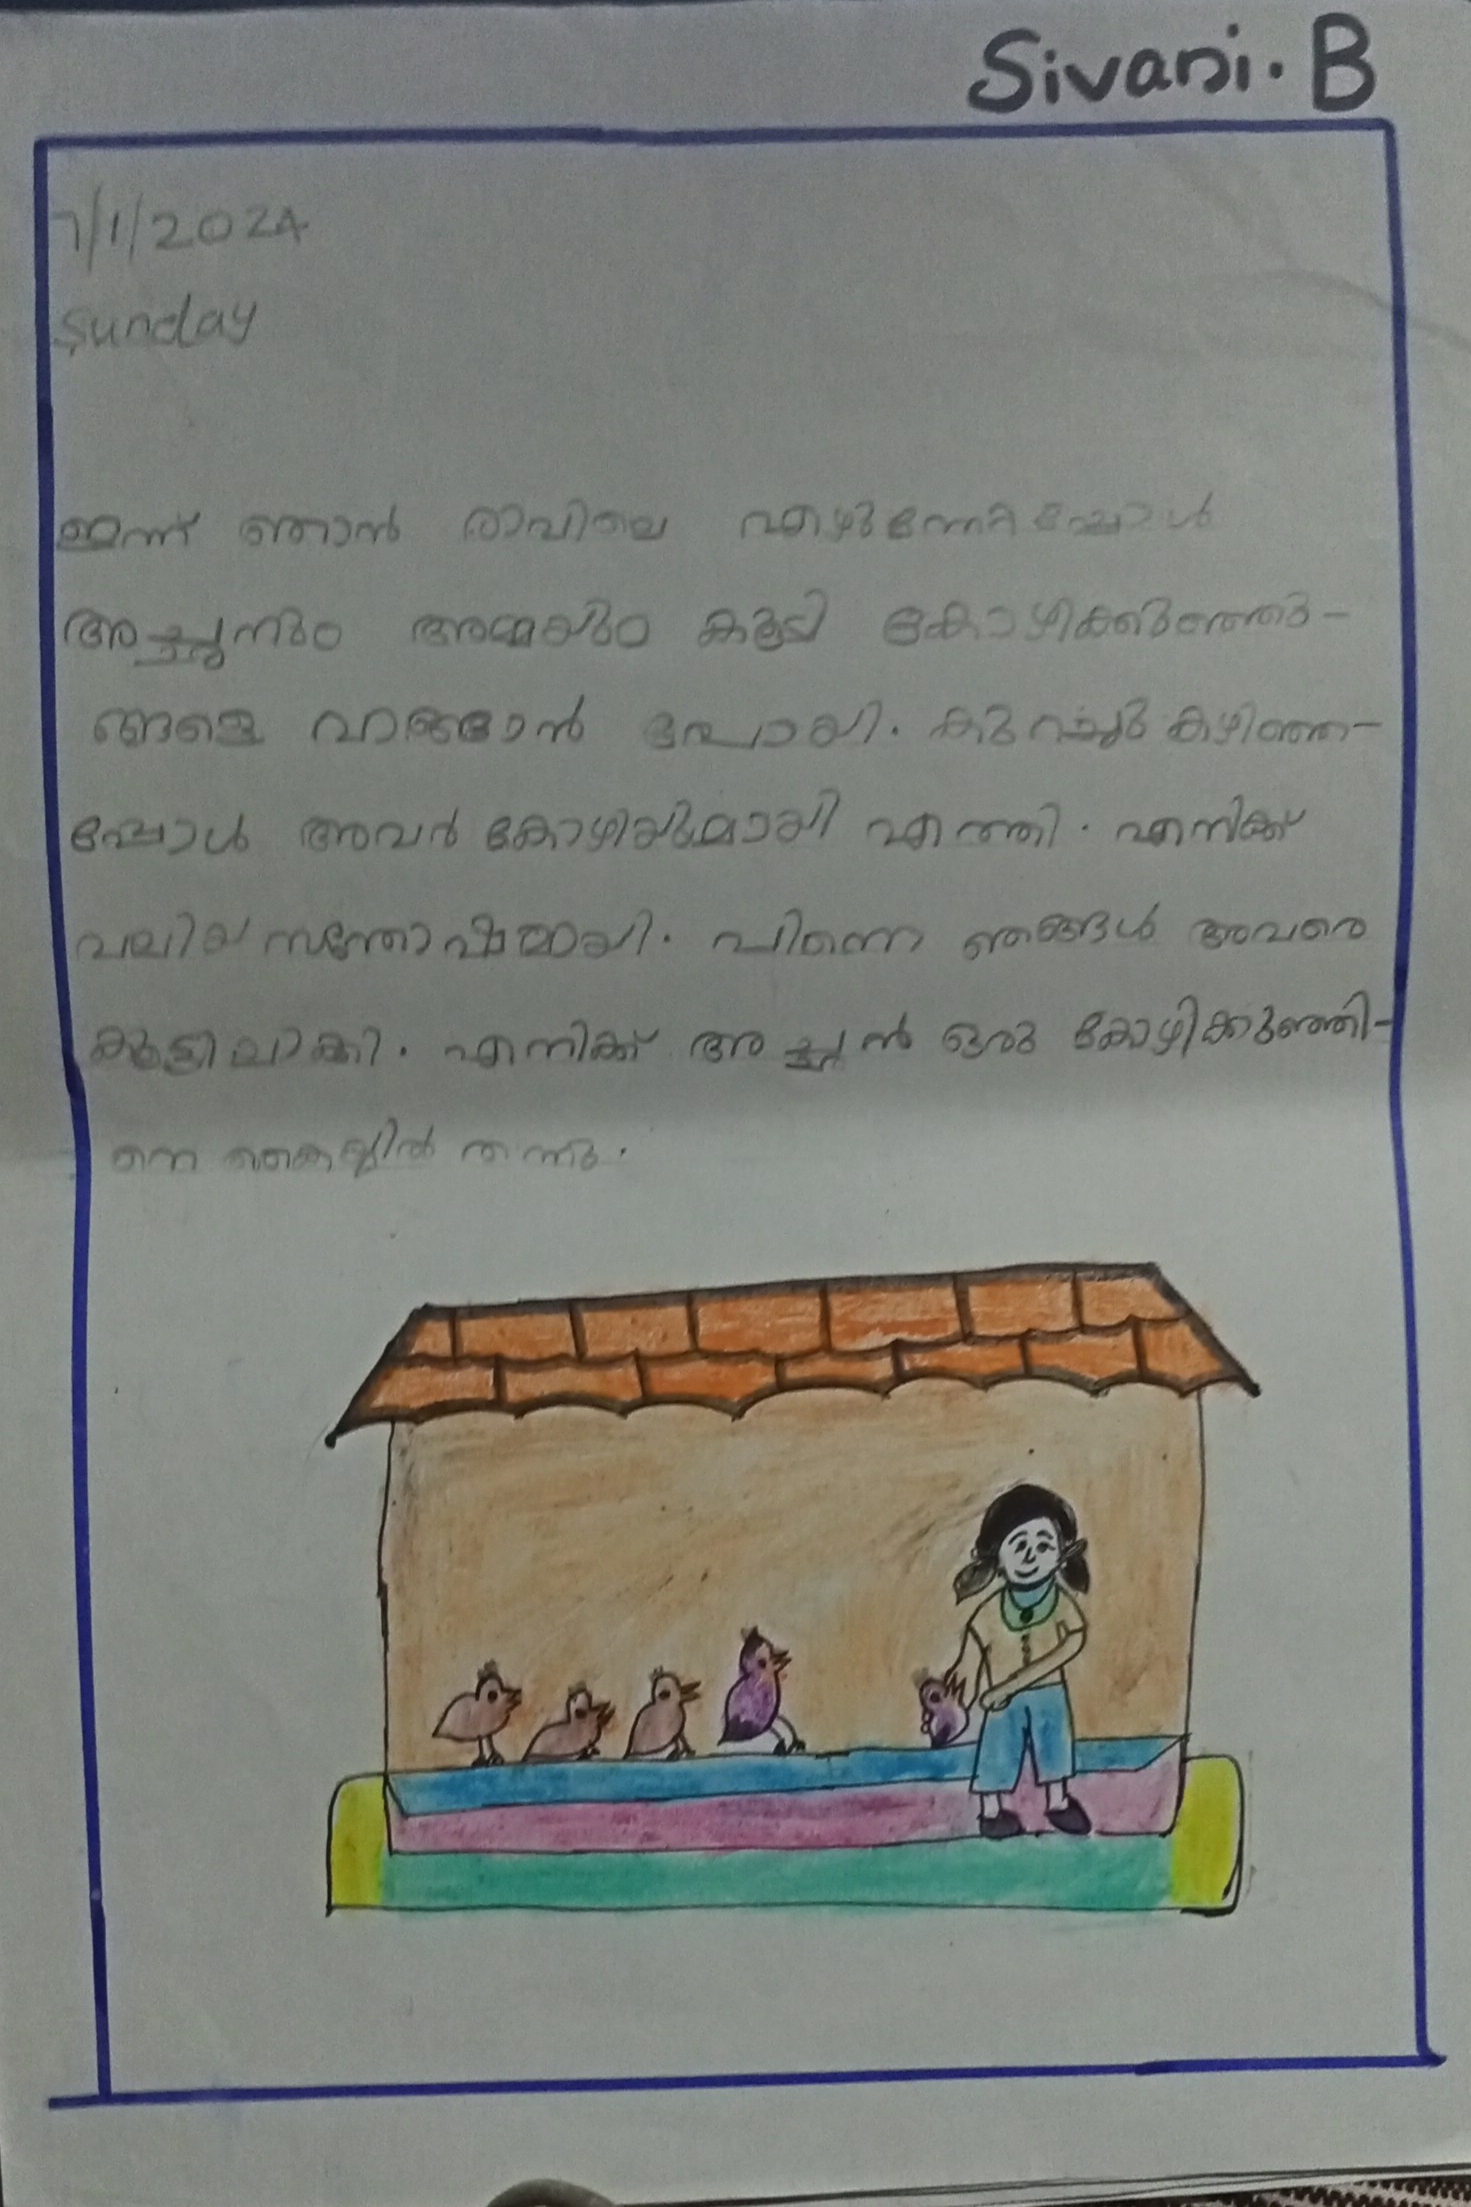 Sivani. B
7/1/2024
Sunday
ഇന്ന് ഞാൻ രാവിലെ എഴുന്നേറ്റപ്പോൾ
അച്ഛനും അമ്മയും കൂടി കോഴിക്കുഞ്ഞു-
ങ്ങളെ വാങ്ങാൻ പോയി. കുറച്ചു കഴിഞ്ഞ-
പ്പോൾ അവർ കോഴിയുമായി എത്തി. എനിക്ക്
വലിയ സന്തോഷമായി. പിന്നെ ഞങ്ങൾ അവരെ
കൂട്ടിലാക്കി. എനിക്ക് അച്ഛൻ ഒരു കോഴിക്കുഞ്ഞി-
നെ കൈയ്യിൽ തന്നു.